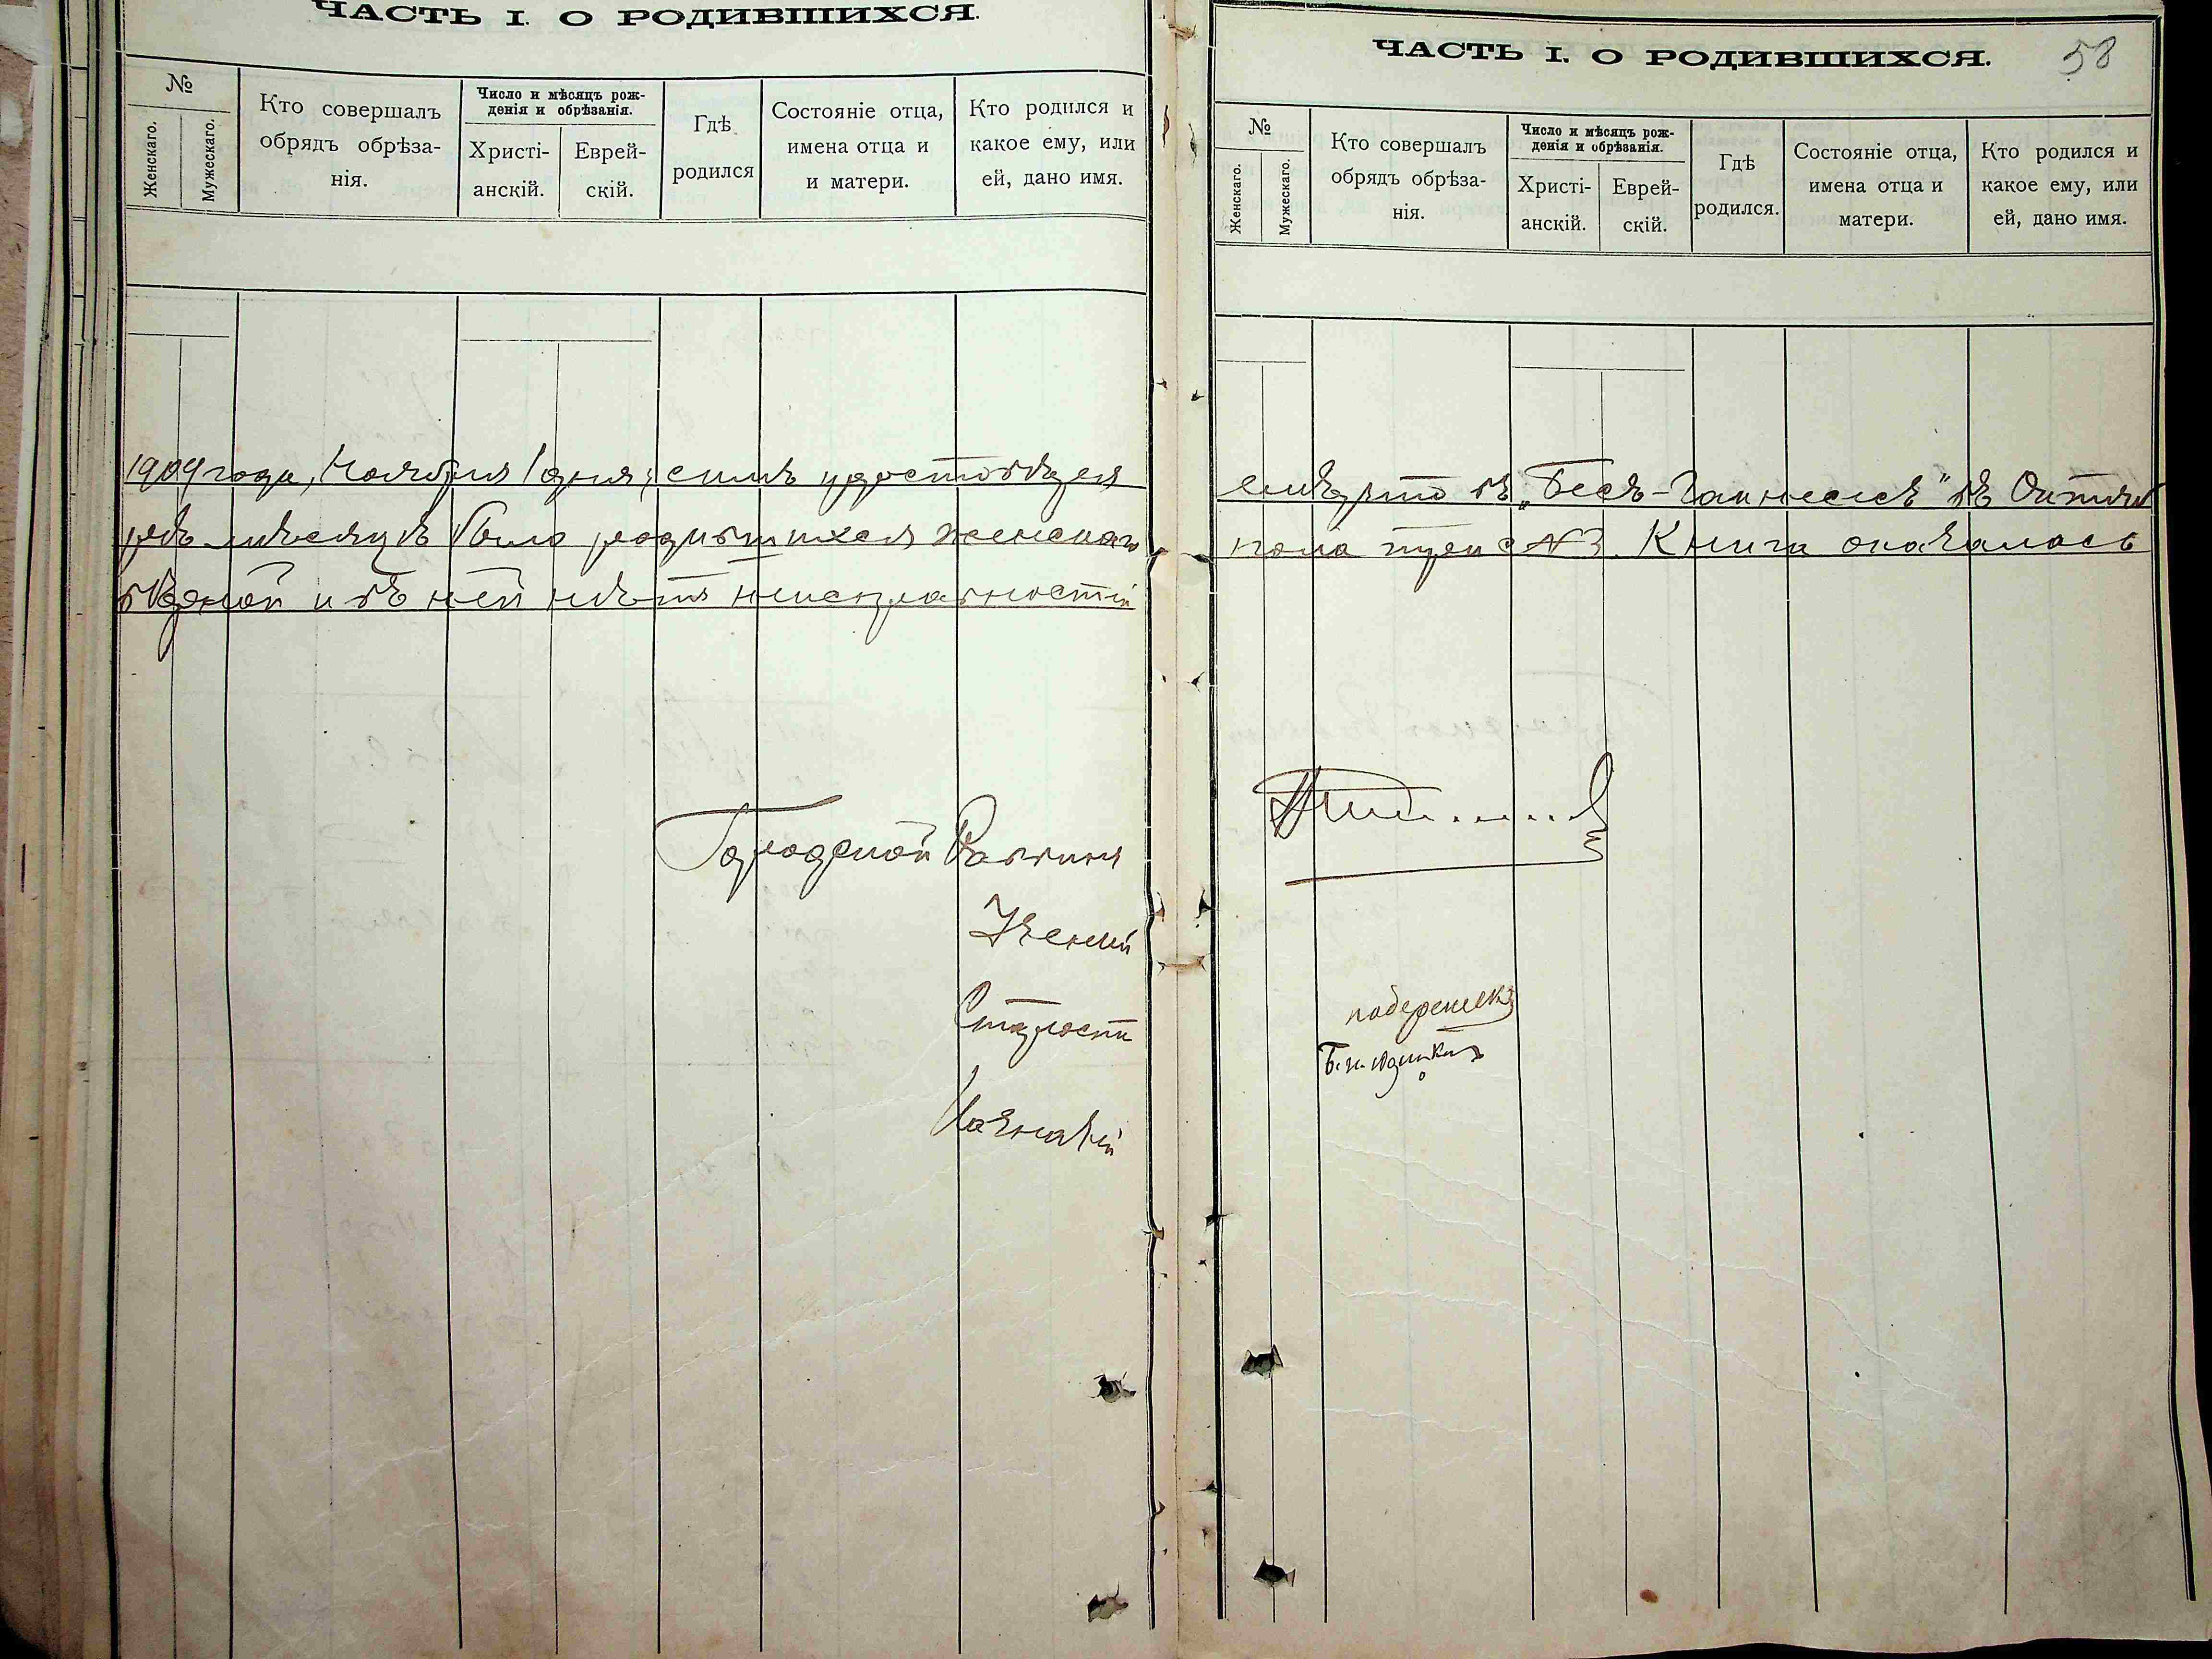 ЧАСТЬ I. О РОДИВШИХСЯ.
№
Женскаго.
Мужескаго.
Кто совершалъ
обрядъ обрѣза-
нія.
Число и мѣсяцъ рож-
денія и обрѣзанія.
Христі-
анскій.
Еврей-
скій.
Гдѣ
родился
Состояніе отца,
имена отца и
и матери.
Кто родился и
какое ему, или
ей, дано имя.
1909 года, Ноября 1 дня, симъ удостовѣря
рѣ мѣсяцѣ было родившихся женскаго
вѣрной и въ ней нѣтъ неисправностей
Городской Раввинъ
Ученый
Староста
Казначей
ЧАСТЬ I. О РОДИВШИХСЯ.
58
№
Женскаго.
Мужескаго.
Кто совершалъ
обрядъ обрѣза-
нія.
Число и мѣсяцъ рож-
денія и обрѣзанія.
Христі-
анскій.
Еврей-
скій.
Гдѣ
родился.
Состояніе отца,
имена отца и
матери.
Кто родился и
какое ему, или
ей, дано имя.
что въ „Бесъ-Гакнесесъ" въ Октяб
пола три №3. Книга оказалась